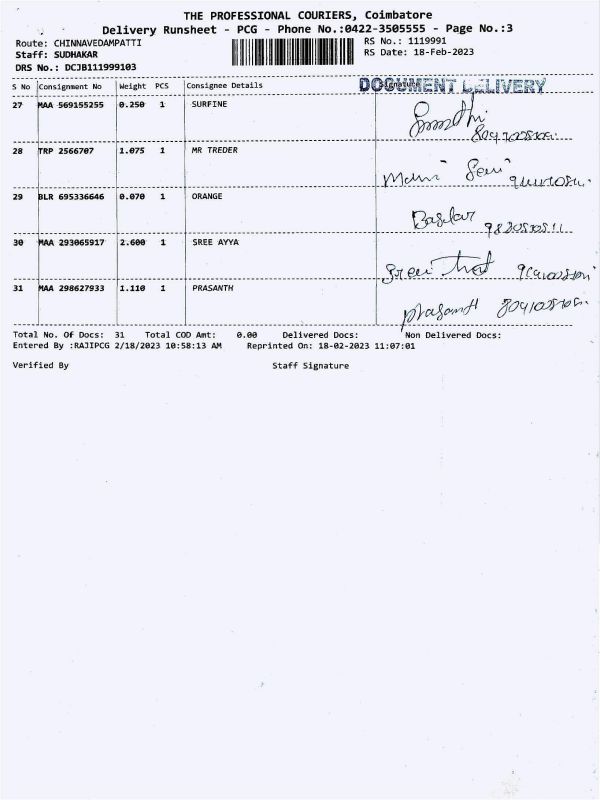 THE PROFESSIONAL COURIERS, Coimbatore
Delivery Runsheet - PCG - Phone No.:0422-3505555 - Page No.:3
Route: CHINNAVEDAMPATTI
Staff: SUDHAKAR
DRS No.: DCJB111999103
RS No.: 1119991
RS Date: 18-Feb-2023
S No Consignment No Weight PCS Consignee Details
DOCUMENT DELIVERY
27 MAA 569155255 0.250 1 SURFINE
28 TRP 2566707 1.075 1 MR TREDER
Mani
29 BLR 695336646 0.070 1 ORANGE
Baskar
30 MAA 293065917 2.600 1 SREE AYYA
31 MAA 298627933 1.110 1 PRASANTH
Prasanth
Total No. Of Docs: 31 Total COD Amt: 0.00 Delivered Docs: Non Delivered Docs:
Entered By :RAJIPCG 2/18/2023 10:58:13 AM Reprinted On: 18-02-2023 11:07:01
Verified By Staff Signature